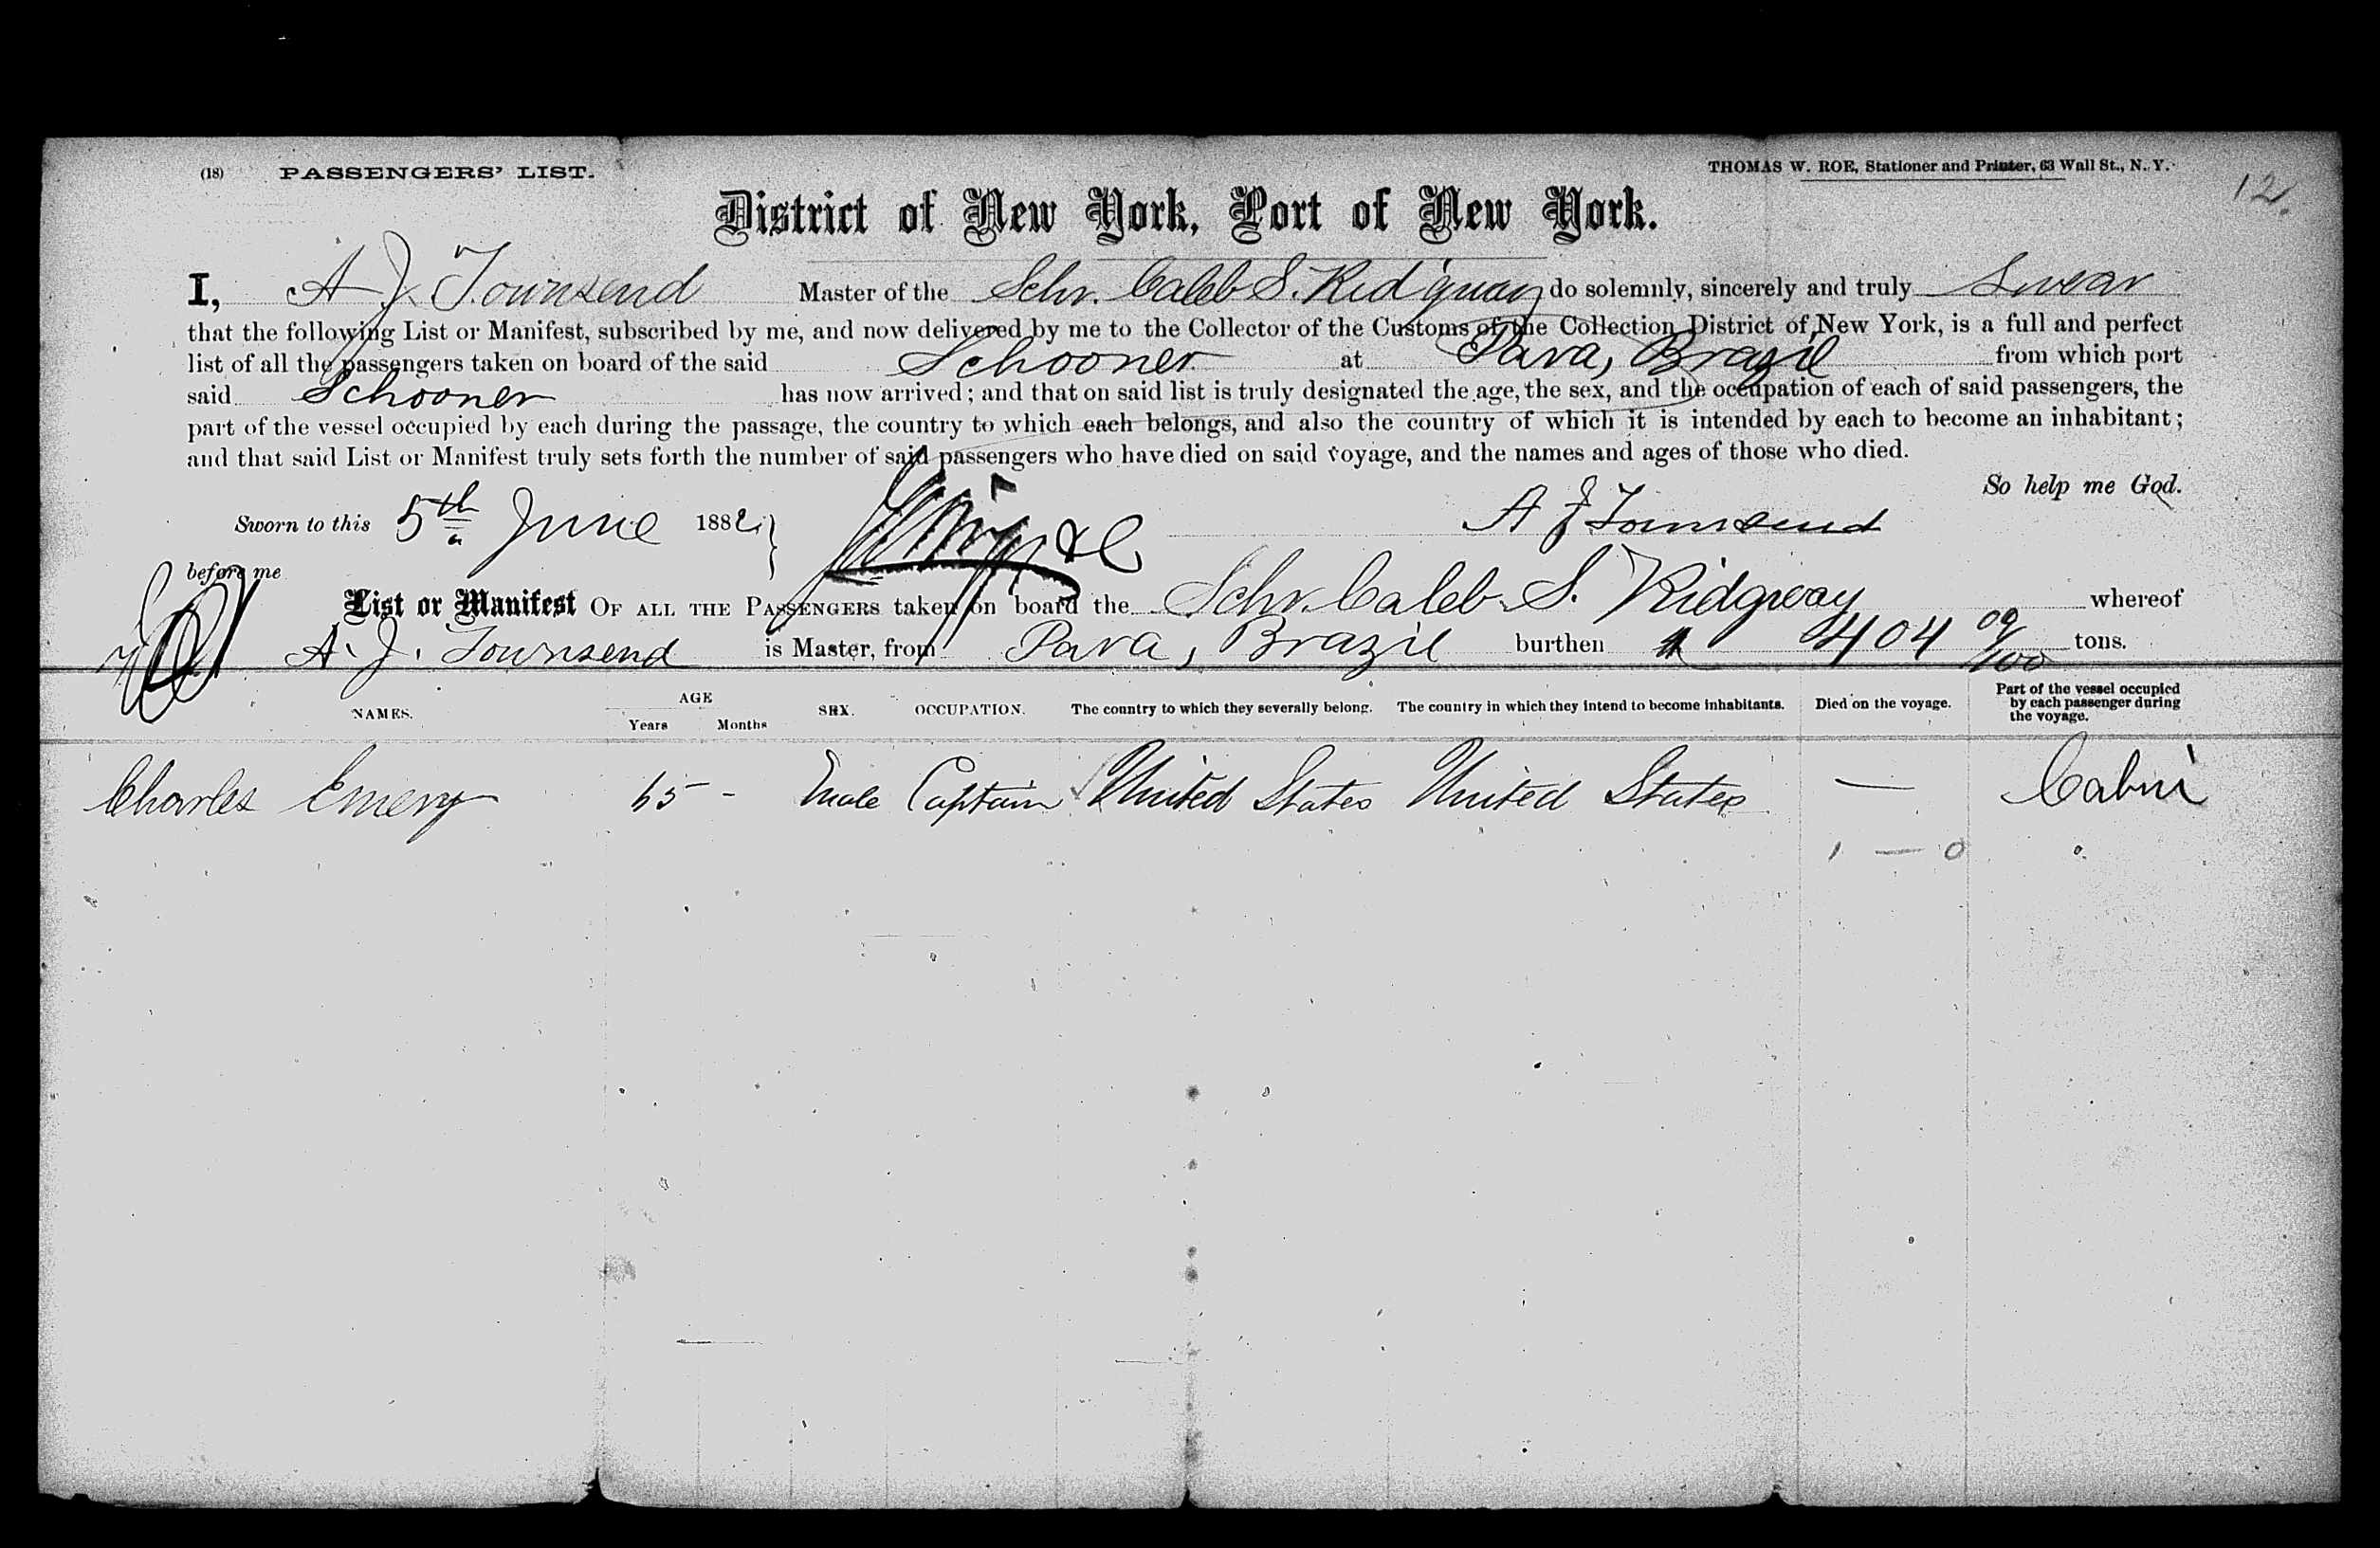 (18) PASSENGERS' LIST.
THOMAS W. ROE, Stationer and Printer, 63 Wall St., N. Y.
12.
District of New York, Port of New York.
I, A J. Townsend Master of the Schr. Caleb S. Ridgway do solemnly, sincerely and truly Swear
that the following List or Manifest, subscribed by me, and now delivered by me to the Collector of the Customs of the Collection District of New York, is a full and perfect
list of all the passengers taken on board of the said Schooner at Para, Brazil from which port
said Schooner has now arrived; and that on said list is truly designated the age, the sex, and the occupation of each of said passengers, the
part of the vessel occupied by each during the passage, the country to which each belongs, and also the country of which it is intended by each to become an inhabitant;
and that said List or Manifest truly sets forth the number of said passengers who have died on said voyage, and the names and ages of those who died.
So help me God.
Sworn to this 5th June 1882 A J Townsend
before me
List or Manifest OF ALL THE PASSENGERS taken on board the Schr. Caleb S. Ridgway whereof
A. J. Townsend is Master, from Para, Brazil burthen 404 09/100 tons.
NAMES. AGE Years Months SEX. OCCUPATION. The country to which they severally belong. The country in which they intend to become inhabitants. Died on the voyage. Part of the vessel occupied by each passenger during the voyage.
Charles Emery 65 - Male Captain United States United States — Cabin
1 — 0